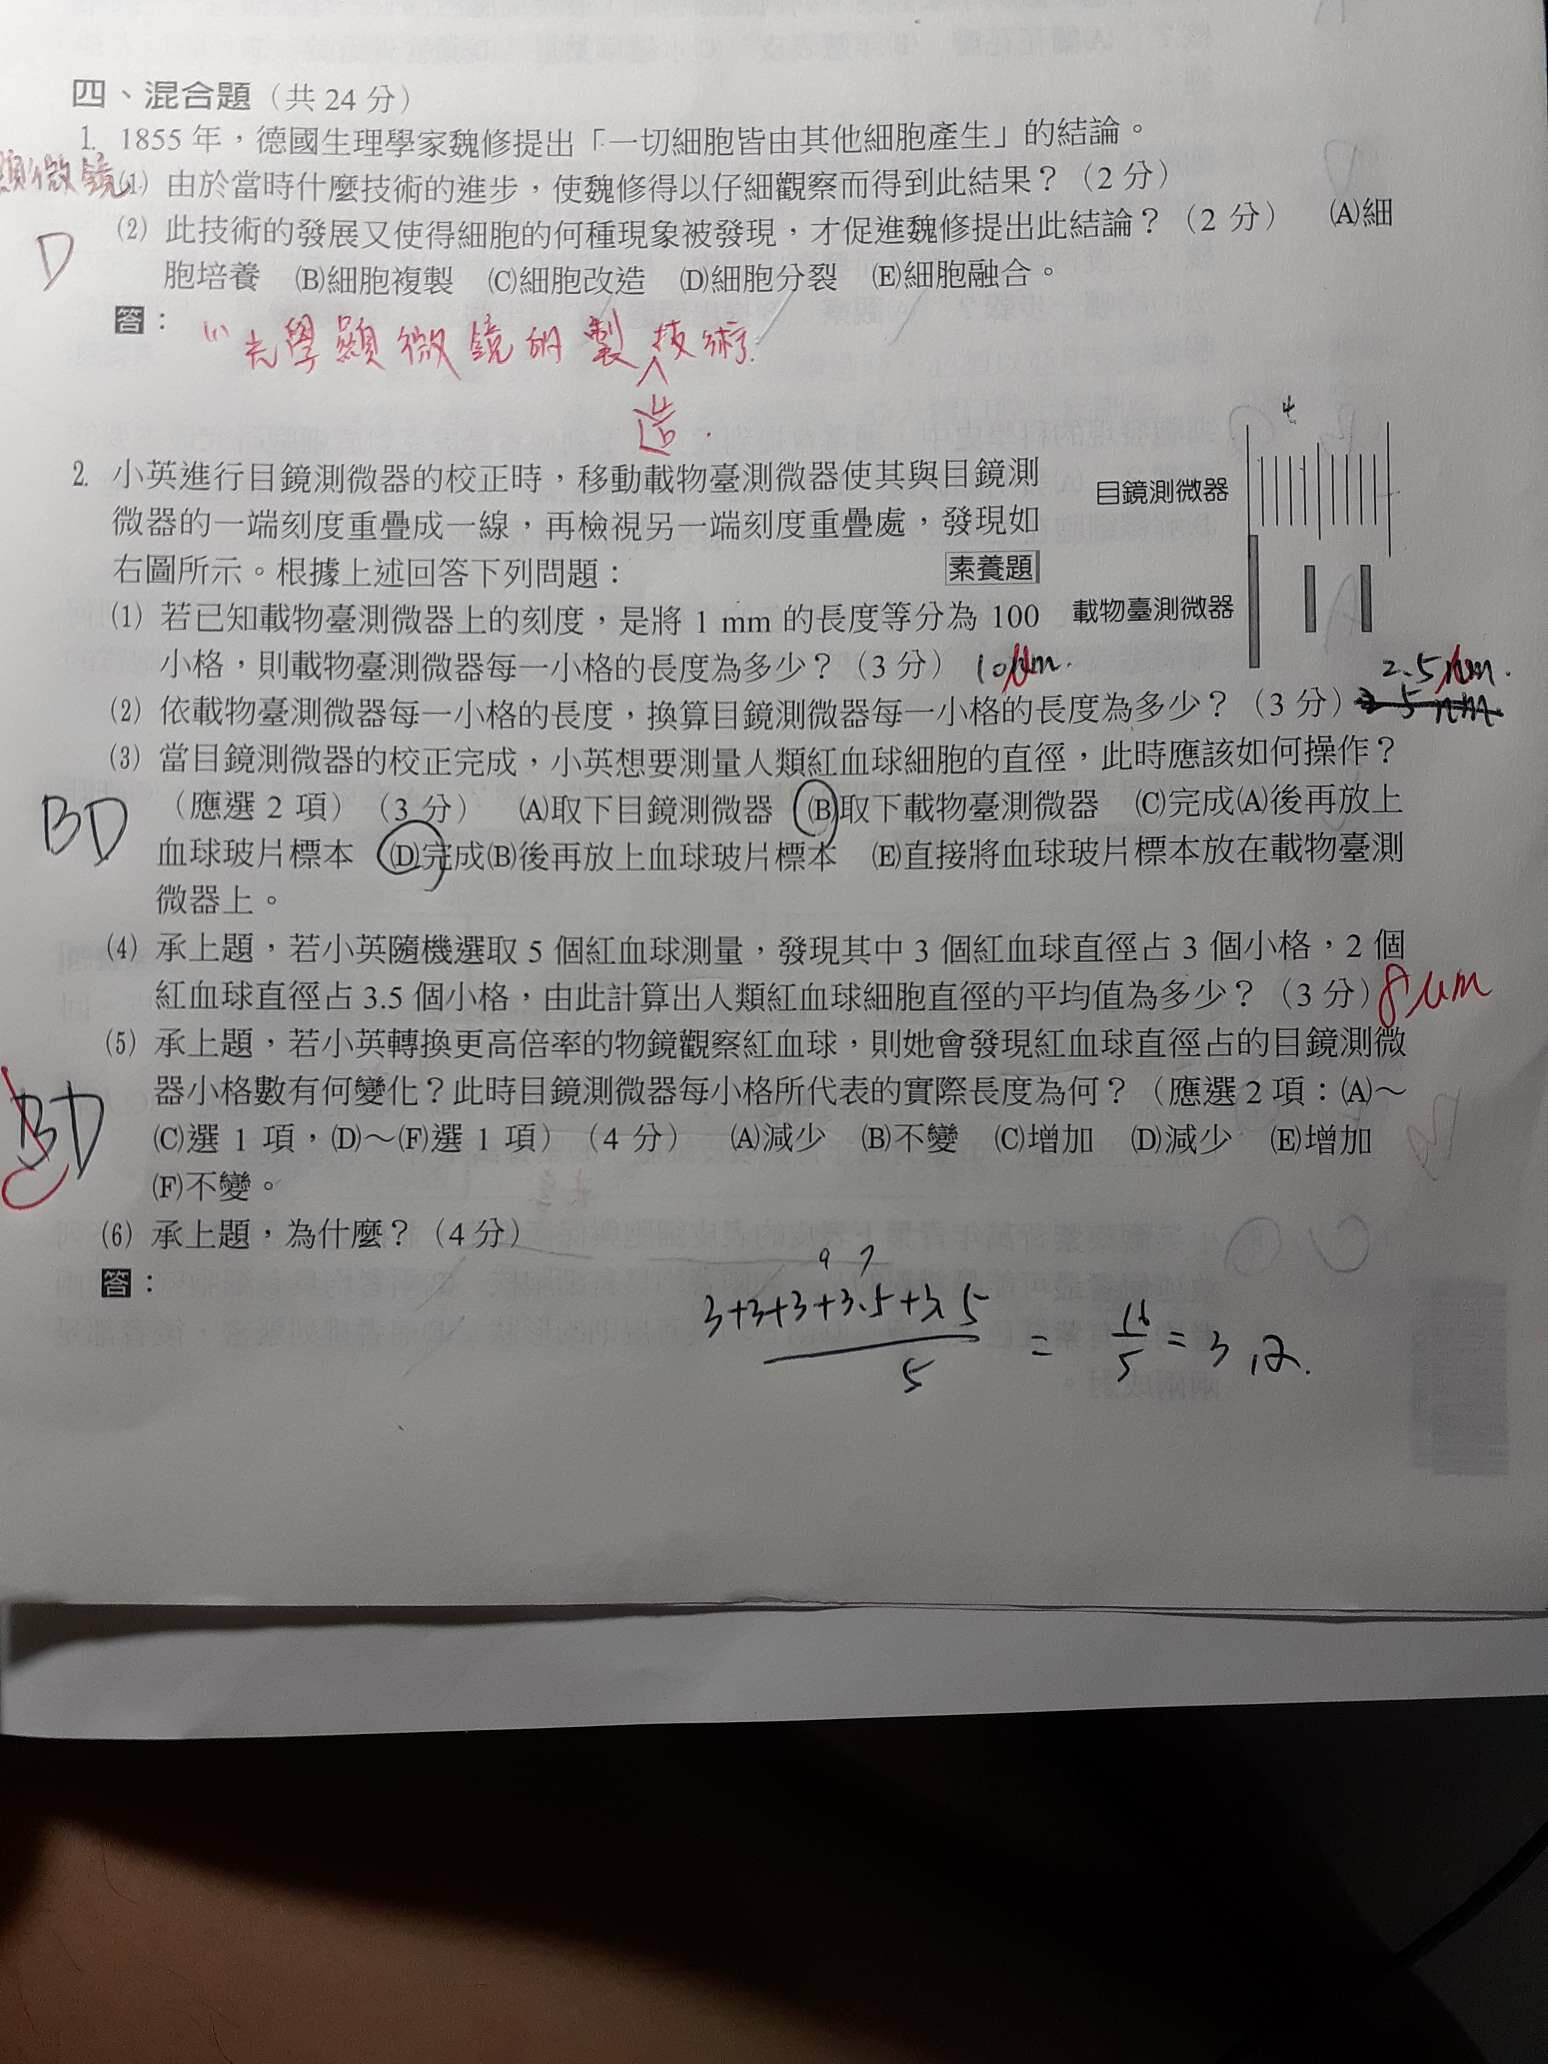 四、混合題（共 24 分）
1. 1855 年，德國生理學家魏修提出「一切細胞皆由其他細胞產生」的結論。
顯微鏡
(1) 由於當時什麼技術的進步，使魏修得以仔細觀察而得到此結果？（2 分）
(2) 此技術的發展又使得細胞的何種現象被發現，才促進魏修提出此結論？（2 分） (A)細
D
胞培養 (B)細胞複製 (C)細胞改造 (D)細胞分裂 (E)細胞融合。
答：
(1) 光學顯微鏡的製造技術.
2. 小英進行目鏡測微器的校正時，移動載物臺測微器使其與目鏡測
微器的一端刻度重疊成一線，再檢視另一端刻度重疊處，發現如
右圖所示。根據上述回答下列問題： 素養題
4
目鏡測微器
載物臺測微器
(1) 若已知載物臺測微器上的刻度，是將 1 mm 的長度等分為 100
小格，則載物臺測微器每一小格的長度為多少？（3 分） 10μm.
(2) 依載物臺測微器每一小格的長度，換算目鏡測微器每一小格的長度為多少？（3 分）
2.5μm.
(3) 當目鏡測微器的校正完成，小英想要測量人類紅血球細胞的直徑，此時應該如何操作？
BD
（應選 2 項）（3 分） (A)取下目鏡測微器 (B)取下載物臺測微器 (C)完成(A)後再放上
血球玻片標本 (D)完成(B)後再放上血球玻片標本 (E)直接將血球玻片標本放在載物臺測
微器上。
(4) 承上題，若小英隨機選取 5 個紅血球測量，發現其中 3 個紅血球直徑占 3 個小格，2 個
紅血球直徑占 3.5 個小格，由此計算出人類紅血球細胞直徑的平均值為多少？（3 分）8μm
(5) 承上題，若小英轉換更高倍率的物鏡觀察紅血球，則她會發現紅血球直徑占的目鏡測微
器小格數有何變化？此時目鏡測微器每小格所代表的實際長度為何？（應選 2 項：(A)～
BD
C
(C)選 1 項，(D)～(F)選 1 項）（4 分） (A)減少 (B)不變 (C)增加 (D)減少 (E)增加
(F)不變。
(6) 承上題，為什麼？（4 分）
答：
9 7
3+3+3+3.5+3.5
5
= 16/5 = 3.2.